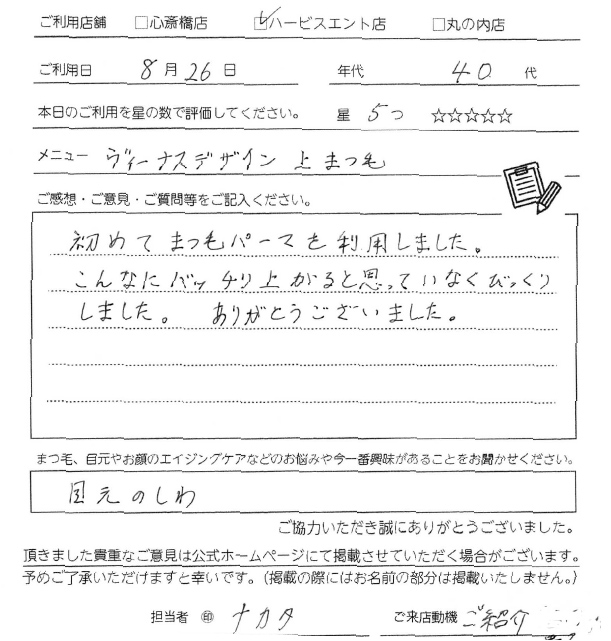 ご利用店舗 □心斎橋店 ☑ハービスエント店 □丸の内店
ご利用日 8月26日 年代 40代
本日のご利用を星の数で評価してください。 星 5つ ☆☆☆☆☆
メニュー ヴィーナスデザイン 上まつ毛
ご感想・ご意見・ご質問等をご記入ください。
初めてまつ毛パーマを利用しました。
こんなにバッチリ上がると思っていなくびっくり
しました。 ありがとうございました。
まつ毛、目元やお顔のエイジングケアなどのお悩みや今一番興味があることをお聞かせください。
目元のしわ
ご協力いただき誠にありがとうございました。
頂きました貴重なご意見は公式ホームページにて掲載させていただく場合がございます。
予めご了承いただけますと幸いです。（掲載の際にはお名前の部分は掲載いたしません。）
担当者 ㊞ ナカタ ご来店動機 ご紹介